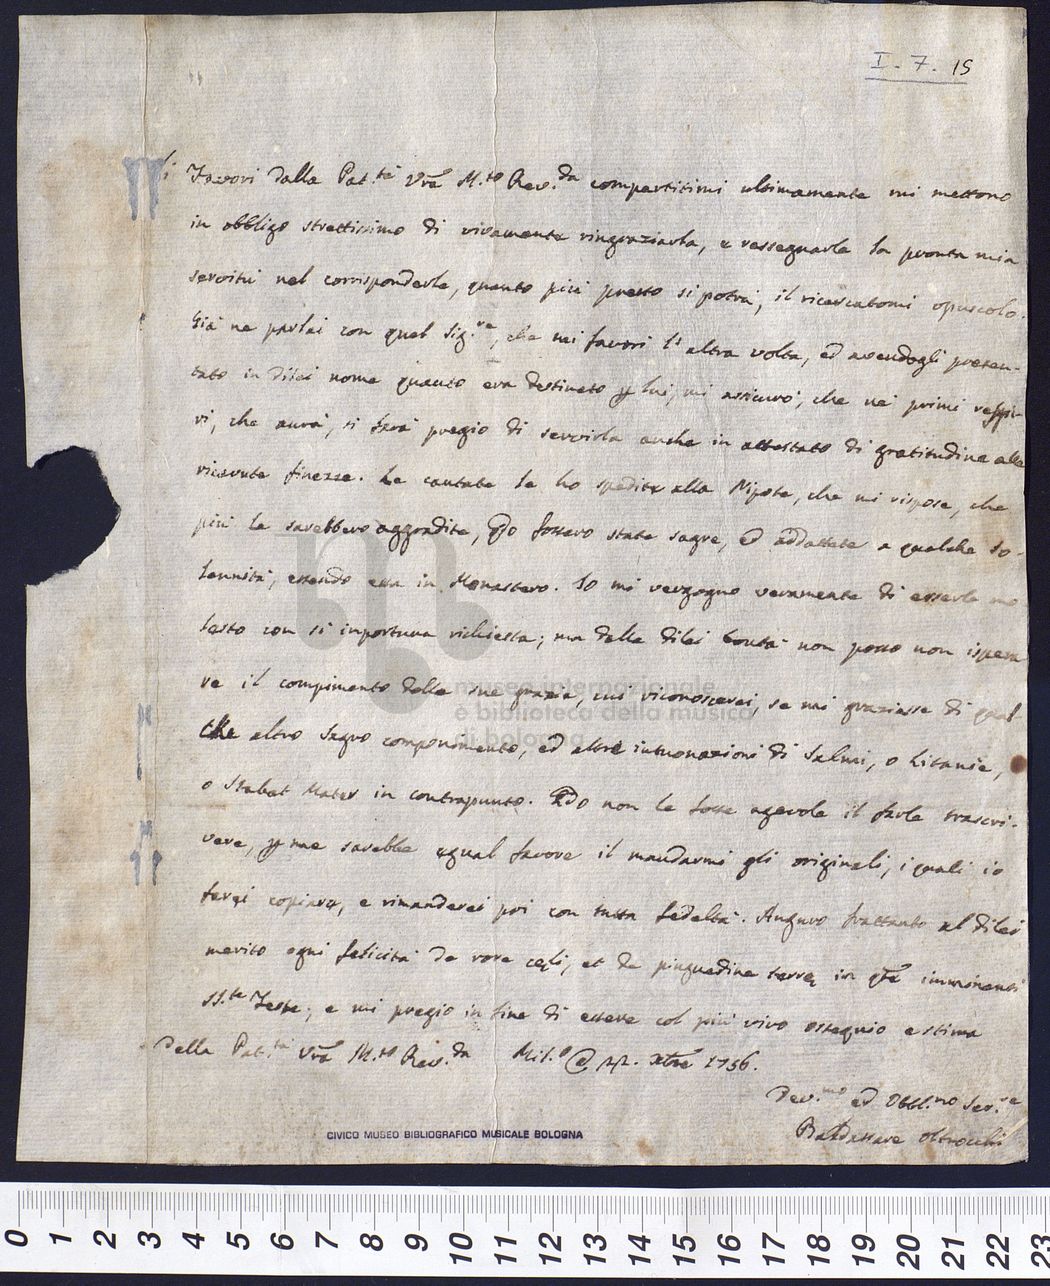 I. 7. 15
Li Favori dalla Pat.tà Vrā M.to Rev.da compartitimi ultimamente mi mettono
in obbligo strettissimo di vivamente ringraziarla, e rassegnarle la pronta mia
servitù nel corrisponderle, quanto più presto si potrà, il ricercatomi opuscolo.
Già ne parlai con quel Sig.re, che mi favorì l' altra volta, ed avendogli presen-
tato in dilei nome quanto era destinato p lui, mi assicurò, che nei primi respi-
ri, che aurà, si farà pregio di servirla anche in attestato di gratitudine alle
ricevute finezze. Le cantate le ho spedite alla Nipote, che mi rispose, che
più le sarebbero aggradite, qdo fossero state sagre, ed addattate a qualche so-
lennità, essendo essa in Monastero. Io mi vergogno veramente di esserle mo
lesto con sì importuna richiesta; ma dalla dilei bontà non posso non ispera
re il compimento delle sue grazie, cui riconoscerei, se mi graziasse di qual
che altro sagro componimento, ed altre intuonazioni di Salmi, o Litanie,
o Stabat Mater in contrapunto. Qdo non le fosse agevole il farle trascri-
vere, p me sarebbe egual favore il mandarmi gli originali, i quali io
farei copiare, e rimanderei poi con tutta fedeltà. Auguro frattanto al dilei
merito ogni felicità de rore cęli, et de pinguedine terrę in qste imminenti
SS.te Feste; e mi pregio in fine di essere col più vivo ossequio e stima
Della Pat.tà Vrā M.to Rev.da Mil.o @ 22. Xbre 1756.
Dev.mo ed Obbl.mo Ser.re
Baldassare Oltrocchi
museo internazionale
e biblioteca della musica
di bologna
CIVICO MUSEO BIBLIOGRAFICO MUSICALE BOLOGNA
0 1 2 3 4 5 6 7 8 9 10 11 12 13 14 15 16 17 18 19 20 21 22 23